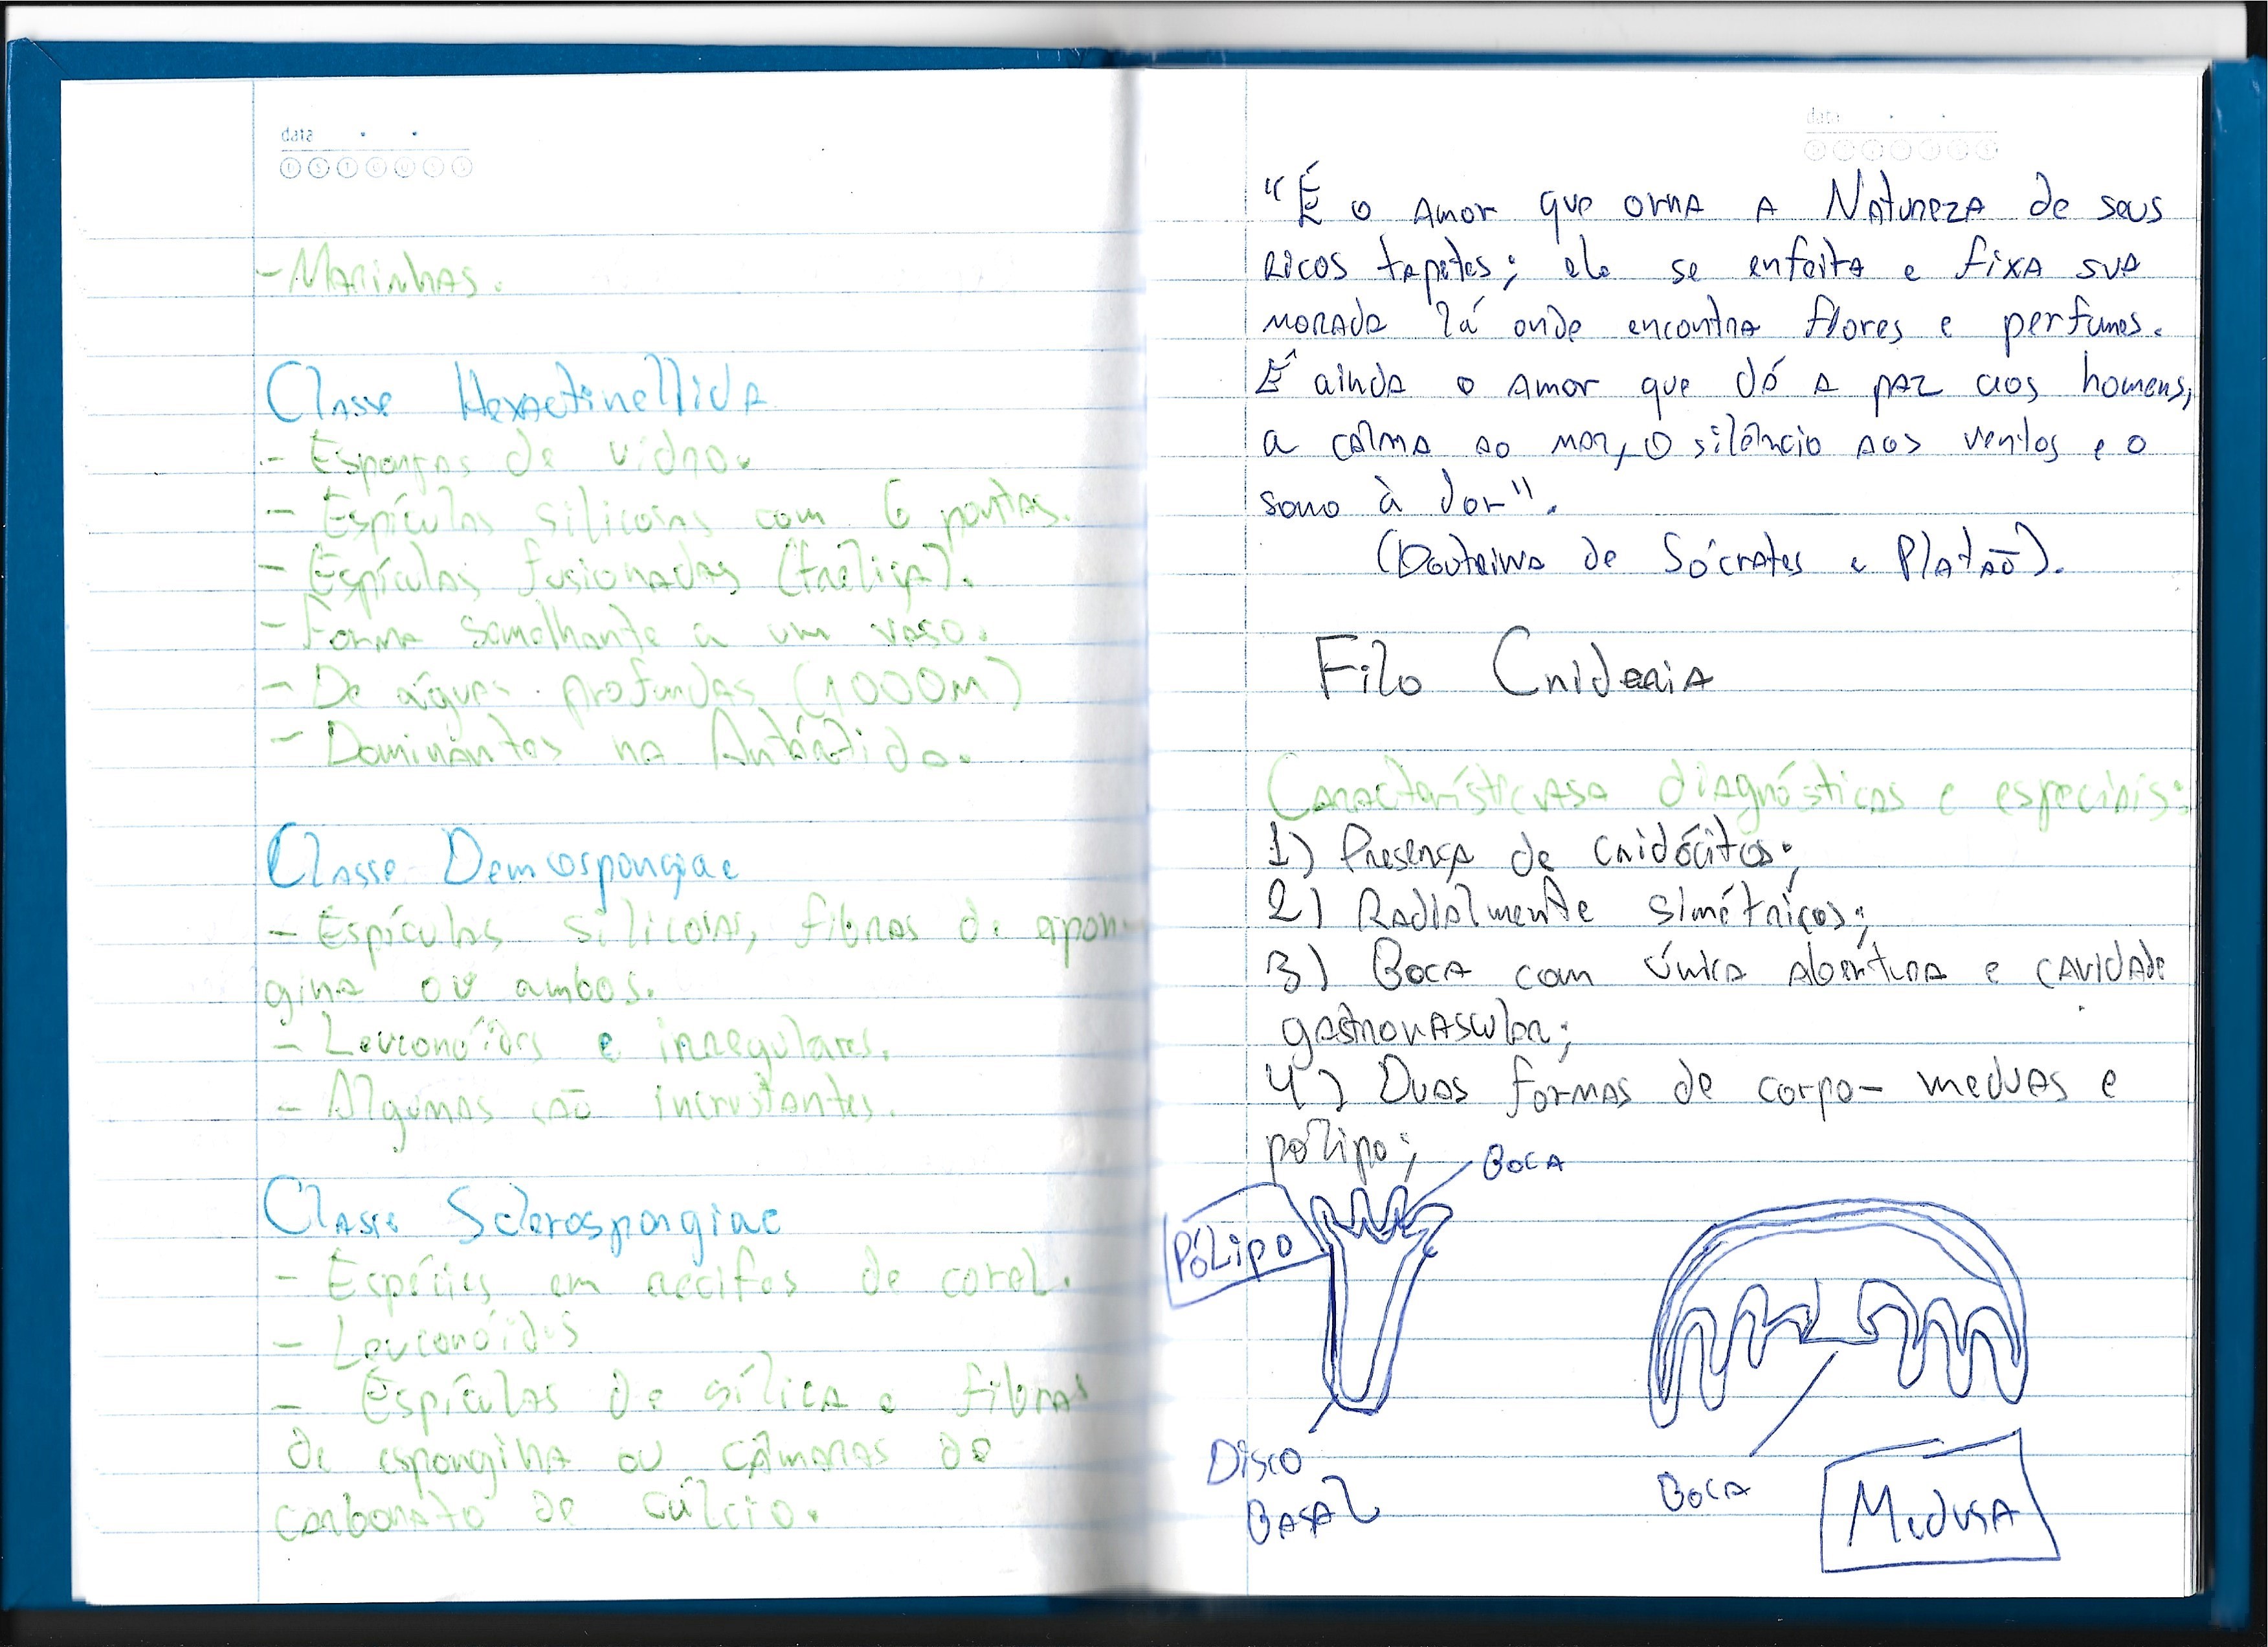 data
- Marinhas.
Classe Hexactinellida
- Esponjas de vidro.
- Espículas silicosas com 6 pontas.
- Espículas fusionadas (treliça).
- Forma semelhante a um vaso.
- De águas profundas (1000m)
- Dominantes na Antártida.
Classe Demospongiae
- Espículas silicosas, fibras de espon-
gina ou ambos.
- Leuconóides e irregulares.
- Algumas são incrustantes.
Classe Sclerospongiae
- Espécies em recifes de corel.
- Leuconóides
- Espículas de sílica e fibras
de espongina ou câmaras de
carbonato de cálcio.
data
"É o Amor que orna a Natureza de seus
ricos tapetes; ele se enfeita e fixa sua
morada lá onde encontra flores e perfumes.
É ainda o amor que dá a paz aos homens,
a calma ao mar, o silêncio aos ventos e o
sono à dor".
(Doutrina de Sócrates e Platão).
Filo Cnidaria
diagnósticas e especiais:
1) Presença de cnidócitos;
2) Radialmente simétricos;
3) Boca com única abertura e cavidade
gastrovascular;
4) Duas formas de corpo- medusas e
pólipo;
Boca
Pólipo
Disco
Basal
Boca
Medusa